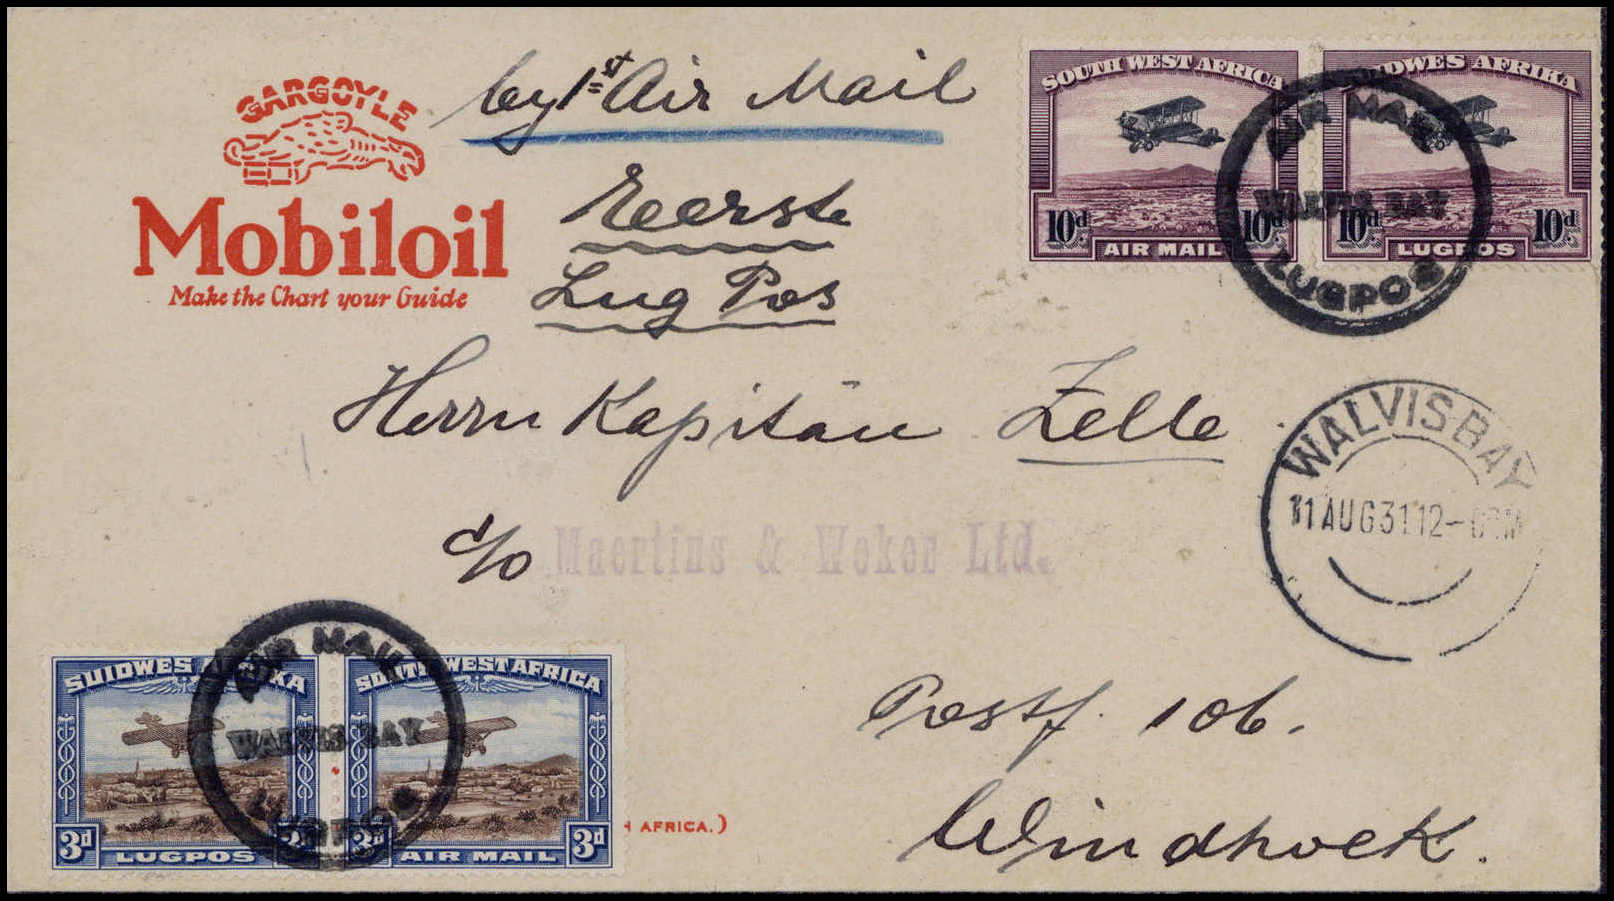 GARGOYLE
Mobiloil
Make the Chart your Guide
by 1st Air Mail
Eerste
Lug Pos
SOUTH WEST AFRICA
10d 10d
AIR MAIL
SUIDWES AFRIKA
10d 10d
LUGPOS
AIR MAIL
WALVIS BAY
LUGPOS
Herrn Kapitän Zelle
c/o Maertins & Weker Ltd.
WALVIS BAY
11 AUG 31 12-
Postf. 106.
Windhoek.
SUIDWES AFRIKA
3d 3d
LUGPOS
SOUTH WEST AFRICA
3d 3d
AIR MAIL
AIR MAIL
WALVIS BAY
LUGPOS
H AFRICA.)